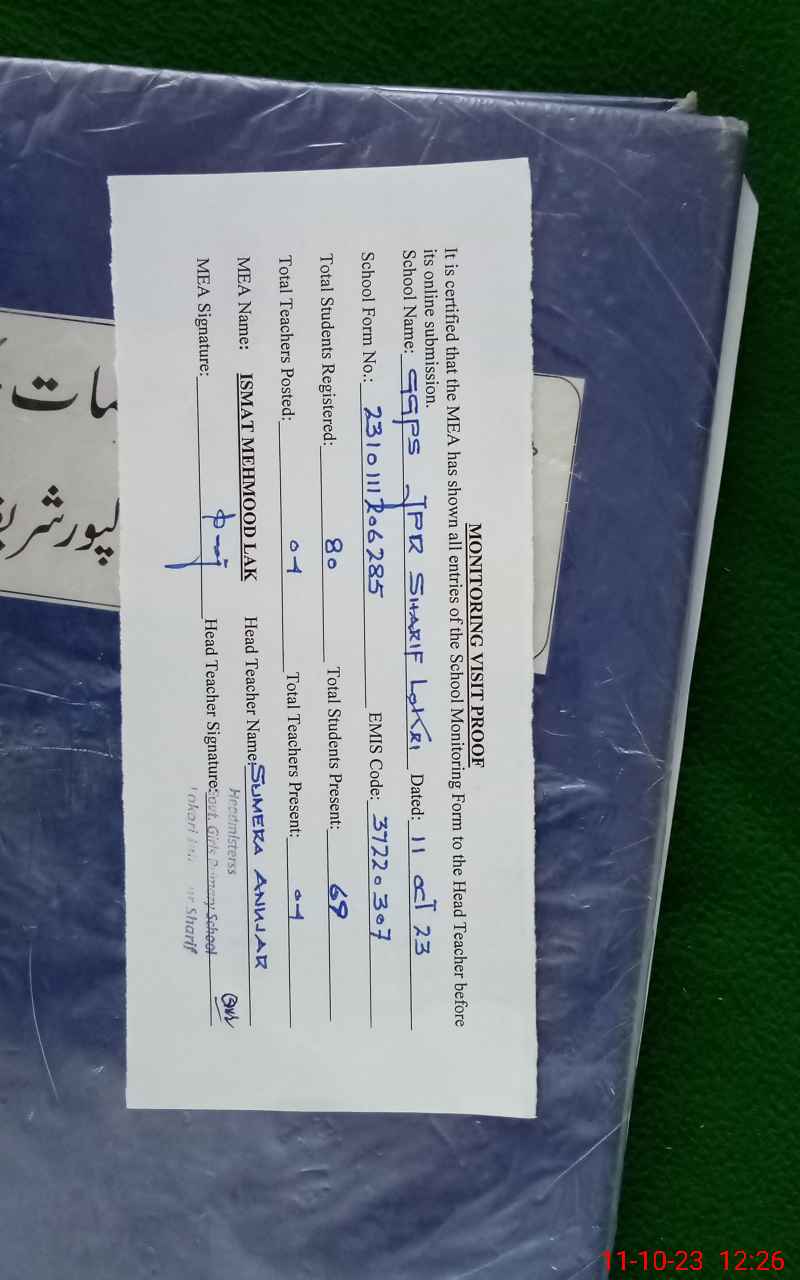 MONITORING VISIT PROOF
It is certified that the MEA has shown all entries of the School Monitoring Form to the Head Teacher before
its online submission.
School Name: GGPS JPR SHARIF LOKRI Dated: 11 OCT 23
School Form No.: 23101117206285 EMIS Code: 37220307
Total Students Registered: 80 Total Students Present: 69
Total Teachers Posted: 04 Total Teachers Present: 04
MEA Name: ISMAT MEHMOOD LAK Head Teacher Name: SUMERA ANUJAR
MEA Signature: Head Teacher Signature:
Headmisterss
Govt. Girls Primary School
Sharif
11-10-23 12:26